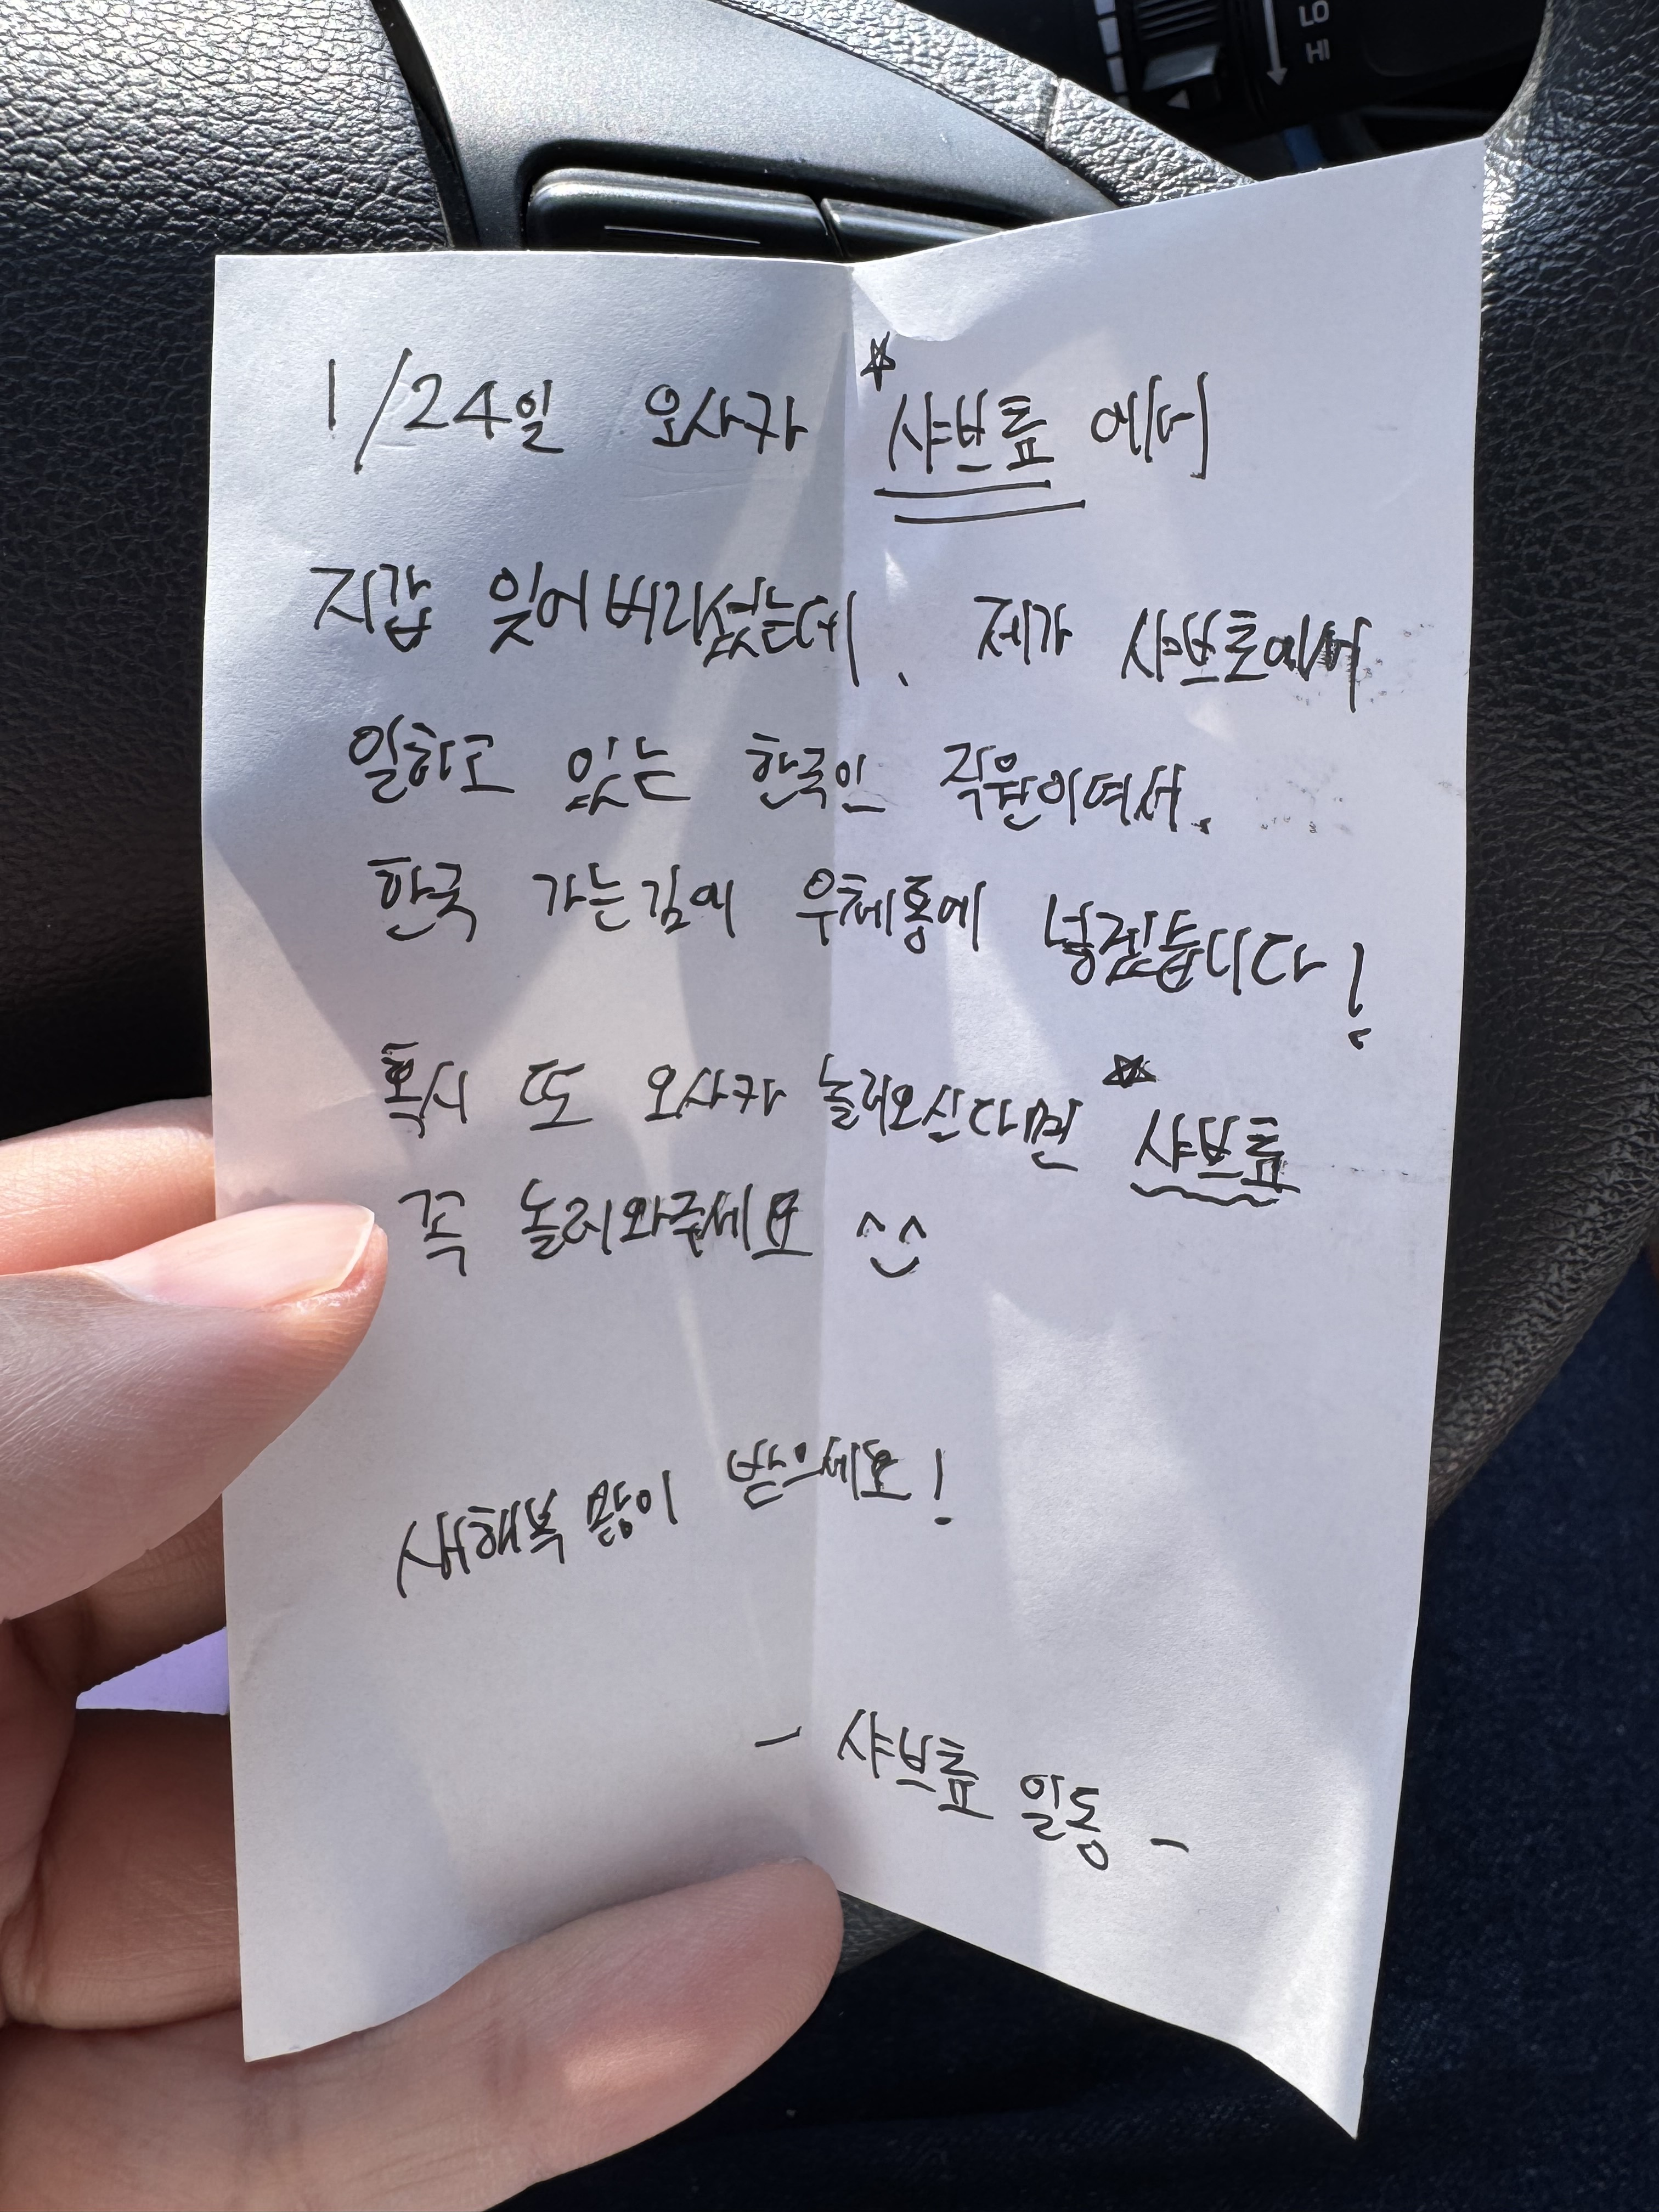 LO
HI
1/24일 오사카 ☆샤브륨 에서
지갑 잊어버리셨는데. 제가 샤브르에서
일하고 있는 한국인 직원이여서.
한국 가는김에 우체통에 넣겠습니다!
혹시 또 오사카 놀러오신다면 ☆샤브륨
꼭 놀러와주세요 ^^
새해복 많이 받으세요!
- 샤브륨 일동 -